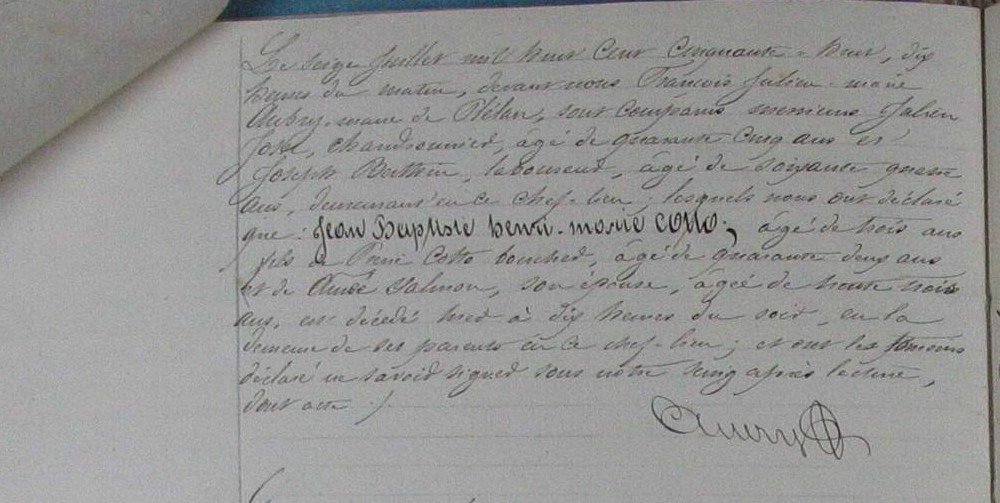 Le seize Juillet mil huit cent cinquante-huit, dix
heures du matin, devant nous François Julien-marie
Aubry, maire de Plélan, sont comparus messieurs Julien
José, chaudronnier, âgé de quarante cinq ans et
Joseph Berthier, laboureur, âgé de soixante quatre
ans, demeurant en ce chef-lieu; lesquels nous ont déclaré
que: Jean Baptiste henri-marie Cotto, âgé de trois ans
fils de Pierre Cotto boucher, âgé de quarante deux ans
et de Aimée Salmon, son épouse, âgée de trente trois
ans, est décédé hier à dix heures du soir, en la
demeure de ses parents en ce chef-lieu; et ont les témoins
déclaré ne savoir signer sous notre seing après lecture,
dont acte ./.
Aubry